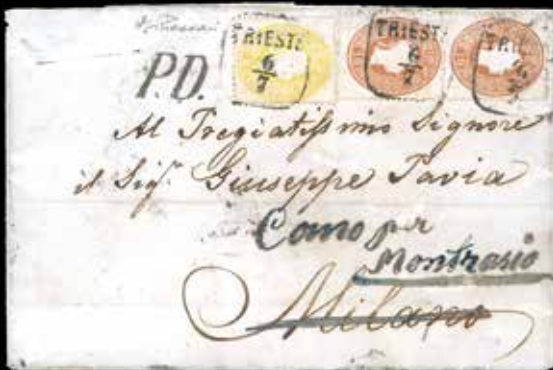 TRIEST
6/7
TRIEST
6/7
TRIE
6/7
P.D.
Al Pregiatissimo Signore
il Sigr. Giuseppe Pavia
Como per
Montrasio
Milano